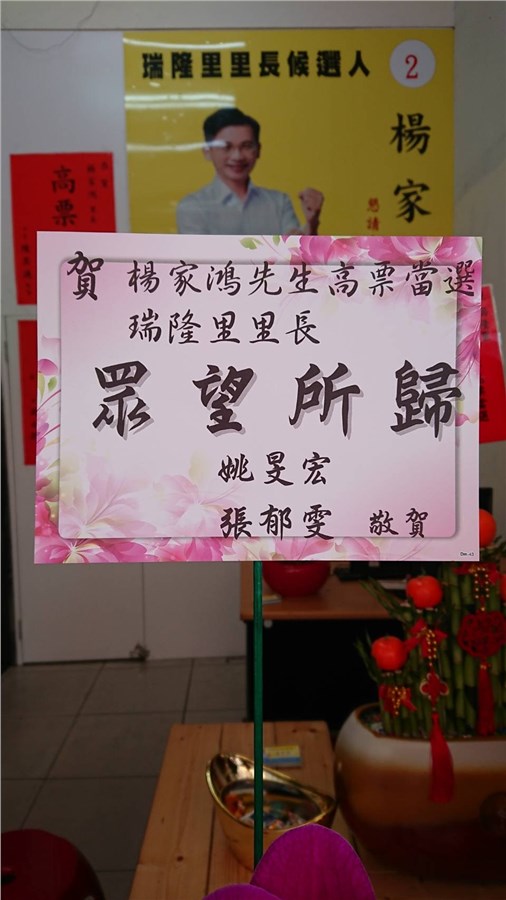 瑞隆里里長候選人 2
楊家
懇請
高票
賀 楊家鴻先生高票當選
瑞隆里里長
眾望所歸
姚旻宏
張郁雯 敬賀